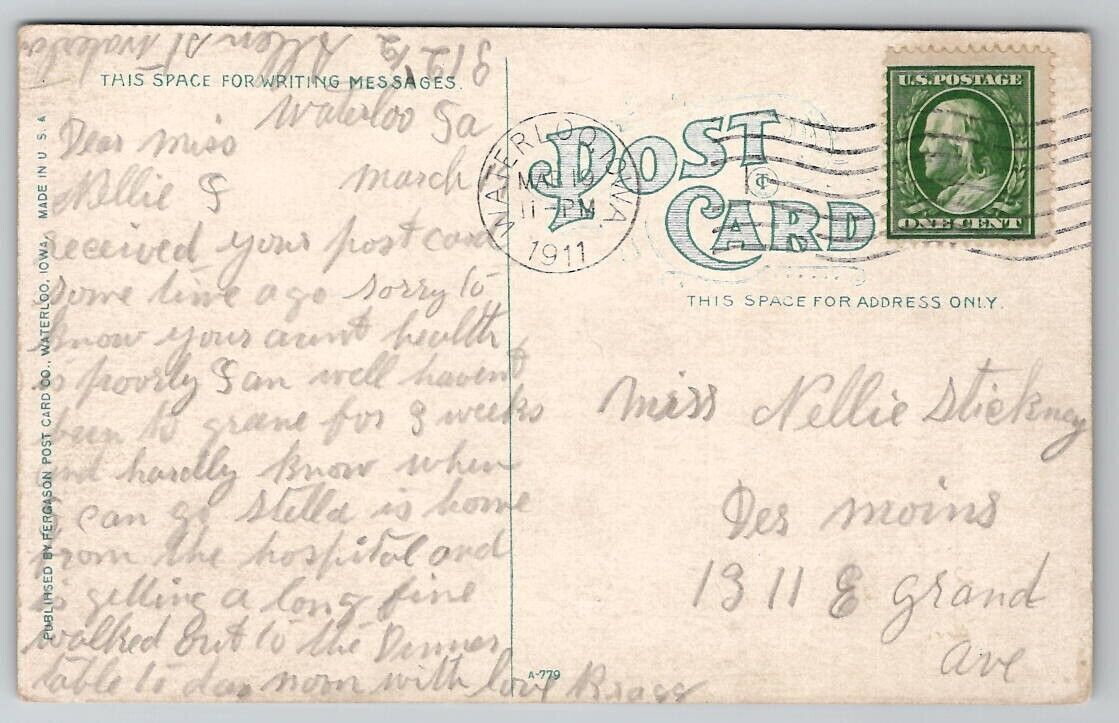 312 1/2 Allen St Waterloo
THIS SPACE FOR WRITING MESSAGES.
Waterloo Ia
Dear Miss
Nellie I March
received your post card
some time ago sorry to
know your aunt health
is poorly I am well havent
been to greene for 8 weeks
and hardly know when
I can go Stella is home
from the hospital and
is getting a long fine
walked out to the Dinner
table to day mom with love
PUBLISHED BY FERGASON POST CARD CO., WATERLOO, IOWA. MADE IN U.S.A.
WATERLOO, IOWA.
MAR 19
11-PM
1911
POST
CARD
U.S. POSTAGE
ONE CENT
THIS SPACE FOR ADDRESS ONLY.
Miss Nellie Stickney
Des moins
1311 E grand
ave
A-779